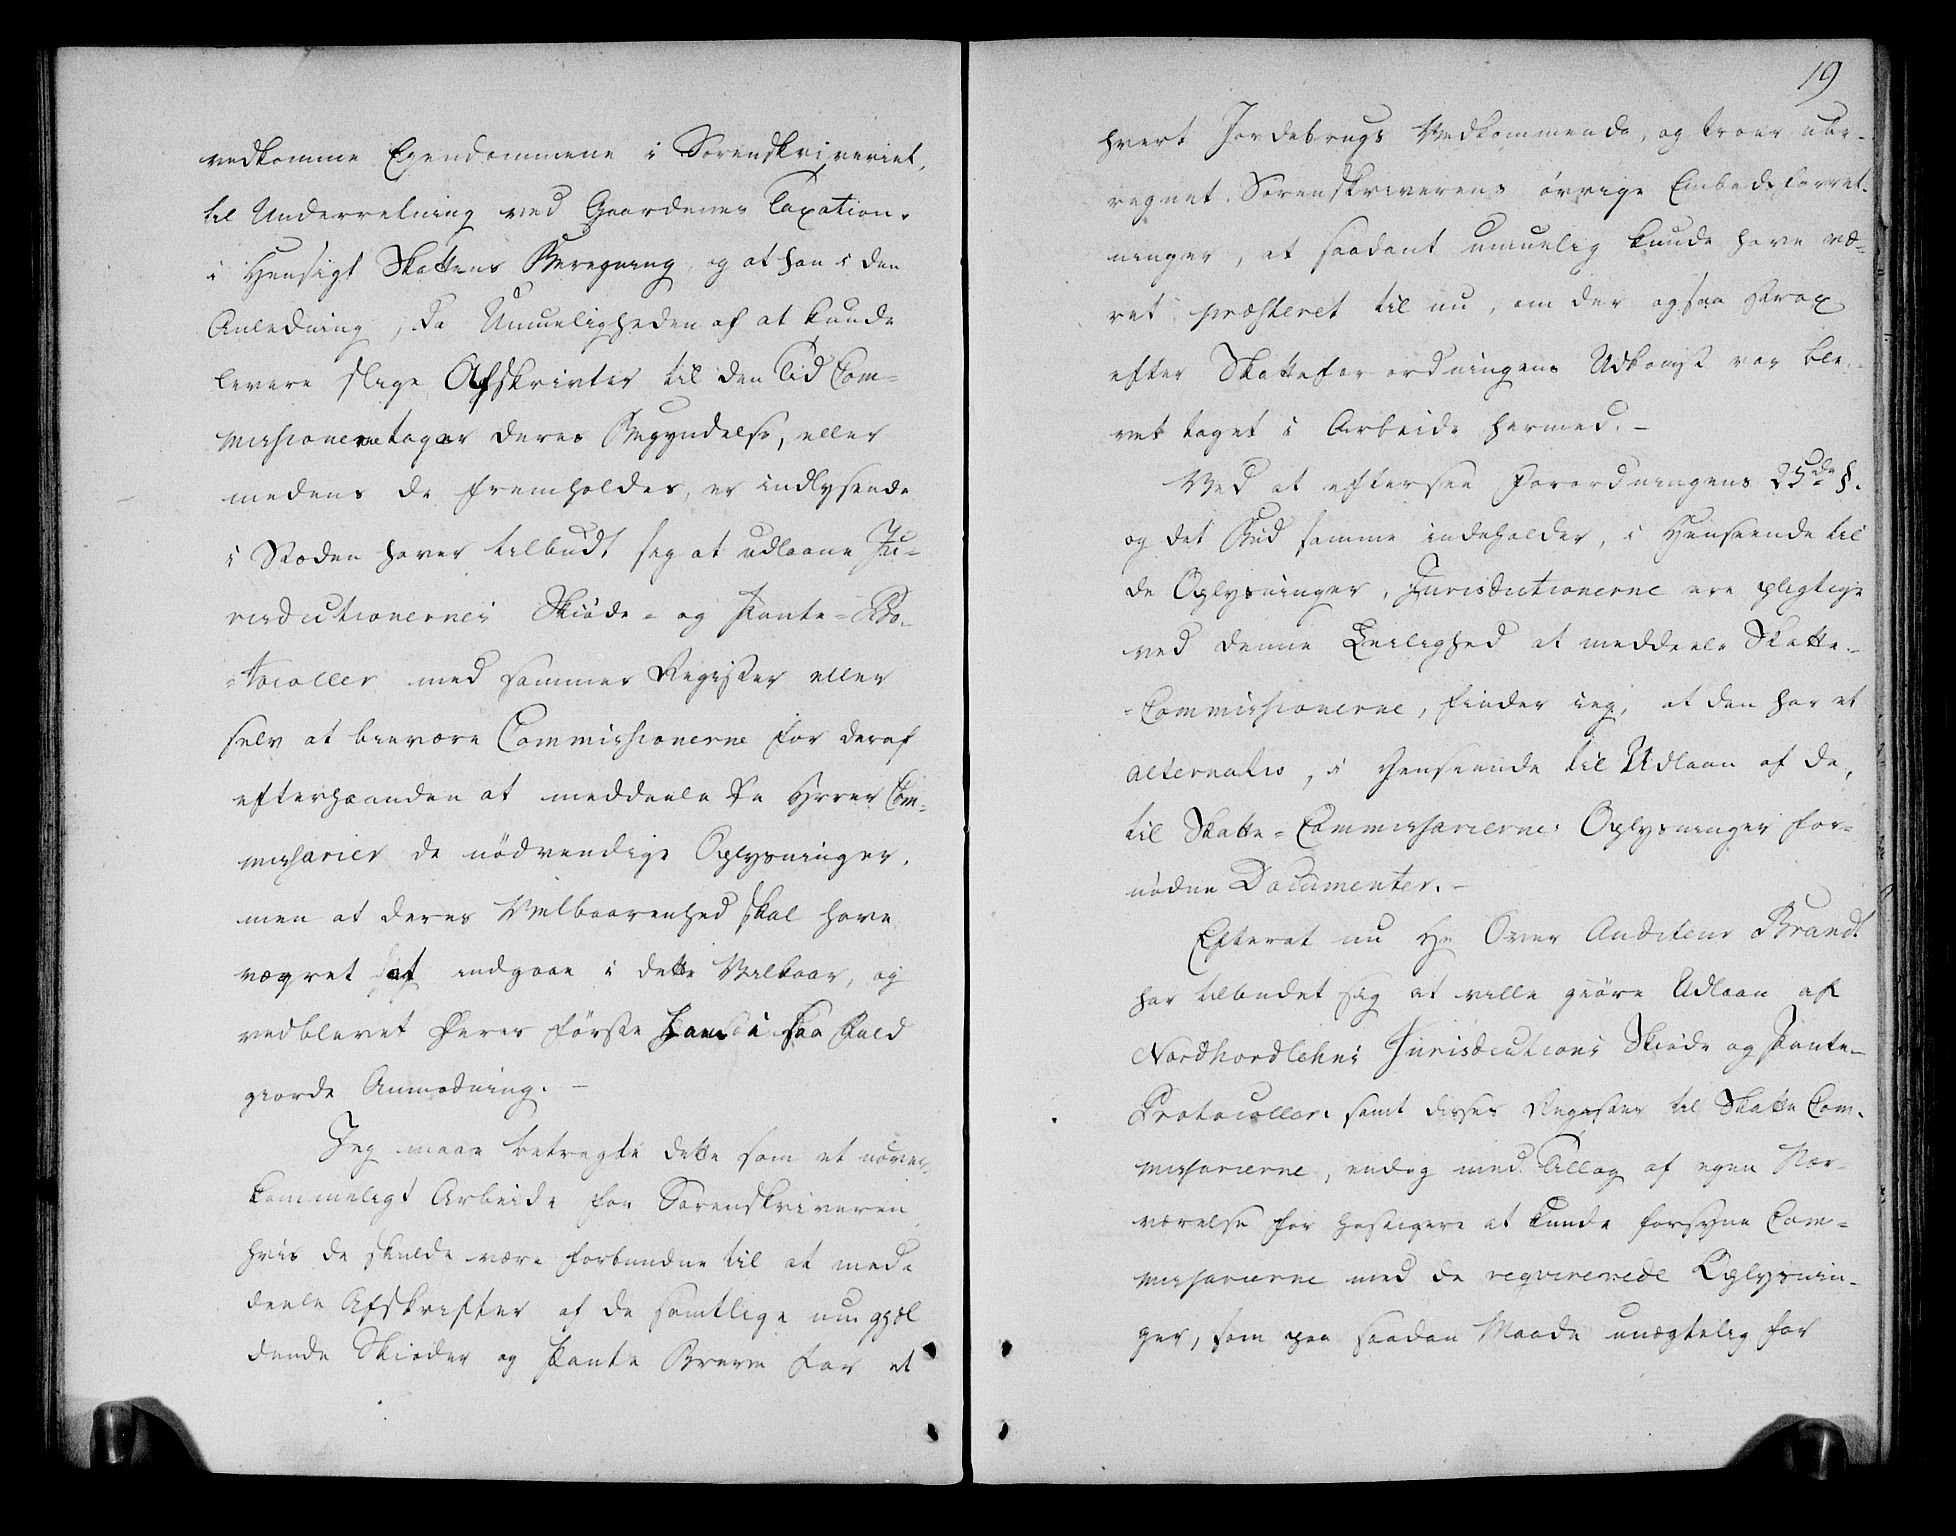 vedkomme Egendommene i Sorenskriveriet,
til Underretning ved Gaardenes Taxation
i Hensigt Skattens Beregning, og at han i den
Anledning, da Umueligheden af at kunde
levere slige Afskrivter til den Tid Com=
missionerne tager deres Begyndelse, eller
medens de fremholdes, er indlysende
i Stæden haver tilbudt sig at udlaane Ju=
risdictionernes Skiøde= og Pante=Pro=
=tocoller med sammes Register eller
selv at bievære Commissionerne for deraf
efterhaanden at meddeele de Herrer Com=
missarier de nödvendige Oplysninger,
men at deres Velbaarenhed skal have
vægret sig at indgaae i dette Vilkaar, og
vedblevet Deres förste i saa Fald
giorde Anmodning. –
Jeg maae betragte dette som et uover=
kommeligt Arbeide for Sorenskriveren
hvis de skulde være forbundne til at med=
deele Afskrifter af de samtlige nu giæl
dende Skiøder og Pante Breve for et
19
hvert Jordebrugs Vedkommende, og troer ube=
regnet Sorenskriverens övrige Embedsforret=
ninger, at saadant umuelig kunde have væ=
ret præsteret til nu, om der ogsaa strax
efter Skatteforordningens Udkomst var ble=
vet taget i Arbeide hermed. –
Ved at eftersee Forordningens 25de §.
og det Bud samme indeholder, i Henseende til
de Oplysninger, Jurisdictionerne ere pligtige
ved denne Leilighed at meddeele Skatte=
=Commissionerne, finder jeg, at den har et
alternativ, i Henseende til Udlaan af de,
til Skatte=Commissariernes Oplysninger for=
nödne Documenter. –
Efterat nu Hr Over Auditeur Brandt
har tilbudet sig at ville giöre Udlaan af
Nordhordlehns Jurisdictions Skiöde og Pante=
Protocoller samt disses Register til Skatte Com=
missarierne, endog med Tillæg af egen Nær=
værelse for hastigere at kunde forsyne Com=
missarierne med de reqvirerede Oplysnin=
ger, som paa saadan Maade unægtelig for